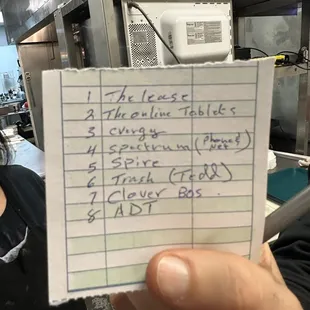 1 The lease
2 The online Tablets
3 evergy
4 spectrum (phone & Net)
5 Spire
6 Trash (Tedd)
7 Clover Bos.
8 ADT